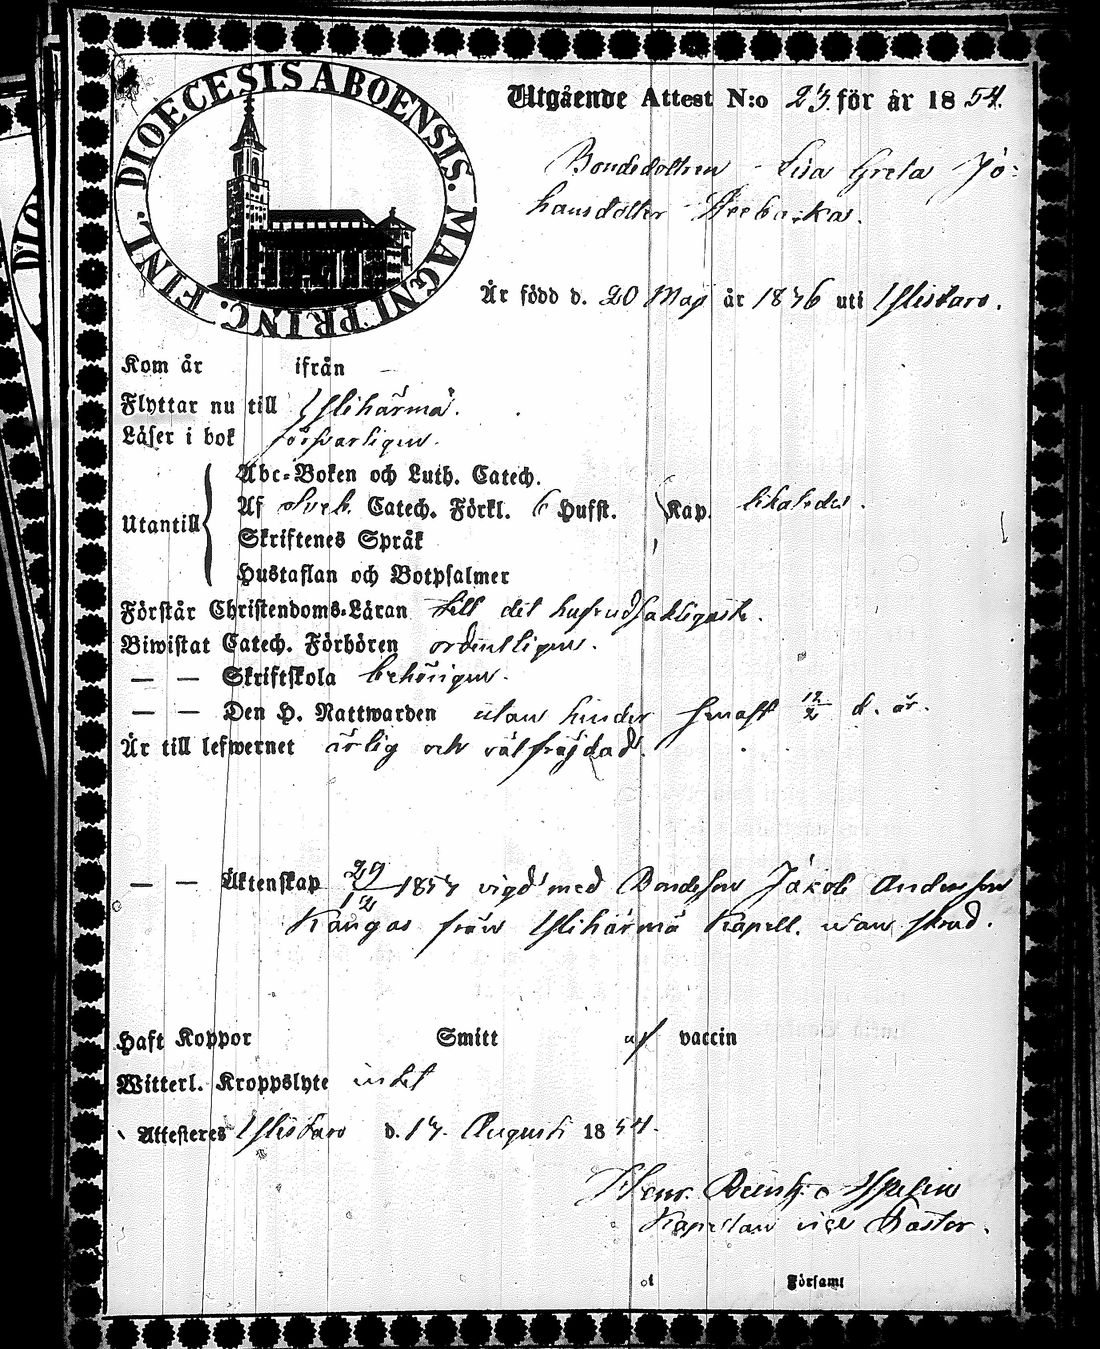 DIOECESIS ABOENSIS. MAGNI PRINC. FINL.
Utgående Attest N:o 23 för år 1854.
Bondedottren Lisa Greta Jo-
hansdotter
Är född d. 20 Maj år 1836 uti Ylistaro.
Kom år ifrån
Flyttar nu till Ylihärmä.
Läser i bok försvarligen.
Utantill
Abc-Boken och Luth. Catech.
Af Sveb. Catech. Förkl. 6 Hufst. Kap. likaledes.
Skriftenes Språk
Hustaflan och Botpsalmer
Förstår Christendoms-Läran till det hufvudsakligaste.
Biwistat Catech. Förhören ordentligen.
— — Skriftskola behörigen.
— — Den H. Nattwarden utan hinder senast 12/2 d. år.
Är till lefwernet ärlig och välfräjdad.
— — Äktenskap 29/12 1853 vigd med Bondeson Jakob Andersson
Kangas från Ylihärmä Kapell. utan
Haft Koppor Smitt af vaccin
Witterl. Kroppslyte intet
Attesteres Ylistaro d. 13. Augusti 1854.
Henr. Reinh.
Kapellan vice Pastor.
Församl